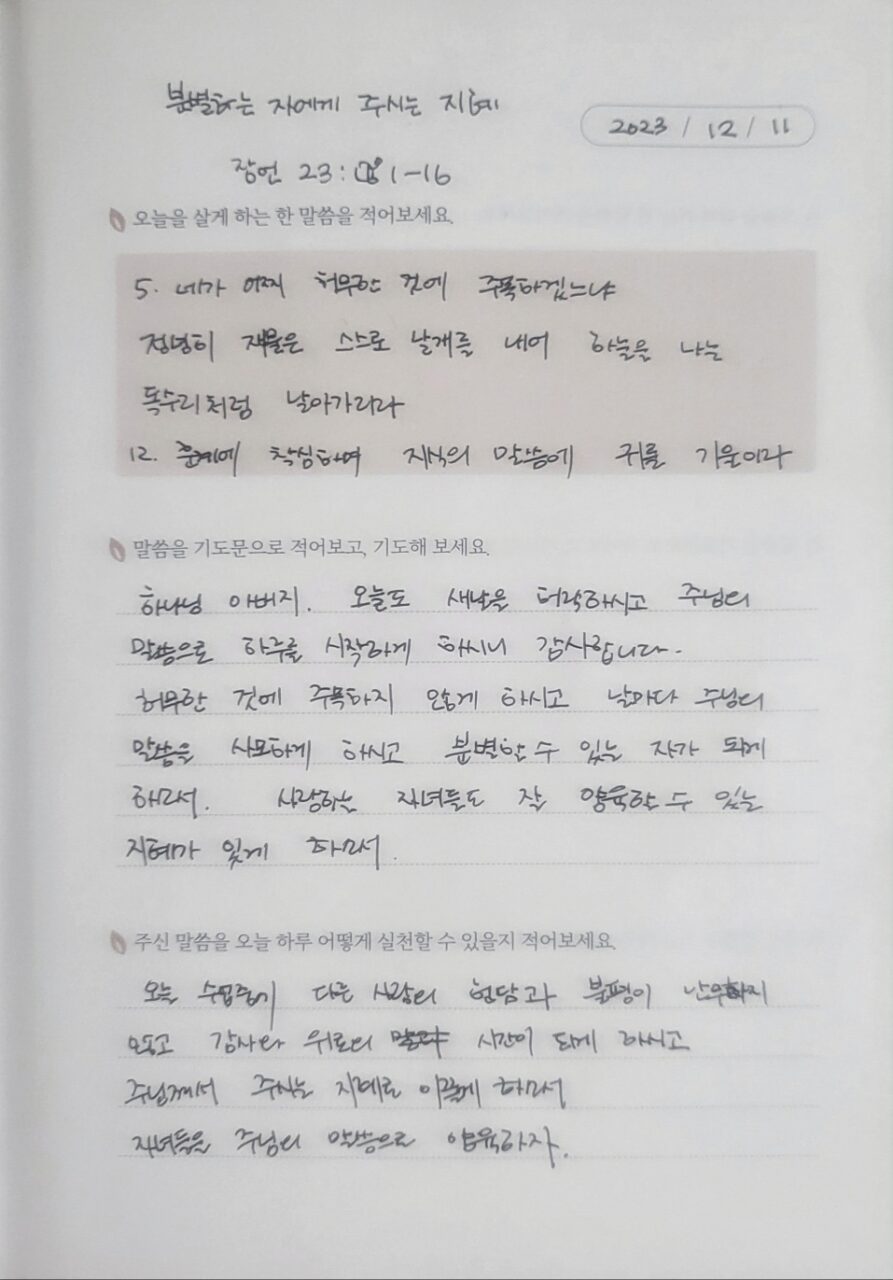 분별하는 자에게 주시는 지혜
2023 / 12 / 11
잠언 23: 1-16
오늘을 살게 하는 한 말씀을 적어보세요.
5. 네가 어찌 허무한 것에 주목하겠느냐
정녕히 재물은 스스로 날개를 내어 하늘을 나는
독수리처럼 날아가리라
12. 훈계에 착심하며 지식의 말씀에 귀를 기울이라
말씀을 기도문으로 적어보고, 기도해 보세요.
하나님 아버지. 오늘도 새날을 허락하시고 주님의
말씀으로 하루를 시작하게 하시니 감사합니다.
허무한 것에 주목하지 않게 하시고 날마다 주님의
말씀을 사모하게 하시고 분별할 수 있는 자가 되게
하소서. 사랑하는 자녀들도 잘 양육할 수 있는
지혜가 있게 하소서.
주신 말씀을 오늘 하루 어떻게 실천할 수 있을지 적어보세요.
오늘 다른 사람의 험담과 불평이 난무하지
않고 감사와 위로의 시간이 되게 하시고
주님께서 주시는 지혜로 하소서
자녀들을 주님의 말씀으로 양육하자.